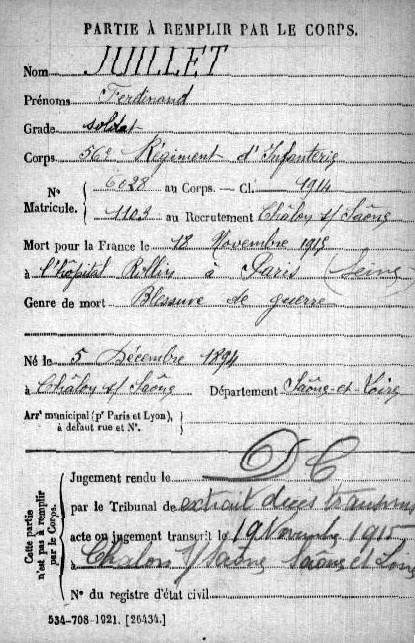 PARTIE À REMPLIR PAR LE CORPS.
Nom JUILLET
Prénoms Ferdinand
Grade soldat
Corps 56e Régiment d'Infanterie
N° Matricule. 6028 au Corps. — Cl. 1914
1103 au Recrutement Châlon s/ Saône
Mort pour la France le 18 Novembre 1915
à l'hôpital Rollin à Paris (Seine)
Genre de mort Blessure de guerre
Né le 5 Décembre 1894
à Châlon s/ Saône Département Saône-et-Loire
Arrt municipal (pr Paris et Lyon),
à défaut rue et N°.
Cette partie n'est pas à remplir par le Corps.
DC
Jugement rendu le
par le Tribunal de extrait deces transmis
acte ou jugement transcrit le 19 Novembre 1915
à Chalon s/ Saône Saône et Loire
N° du registre d'état civil
534-708-1921. [26434.]